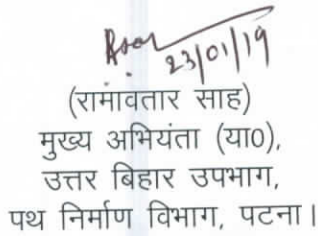 23/01/19
(रामावतार साह)
मुख्य अभियंता (या0),
उत्तर बिहार उपभाग,
पथ निर्माण विभाग, पटना।